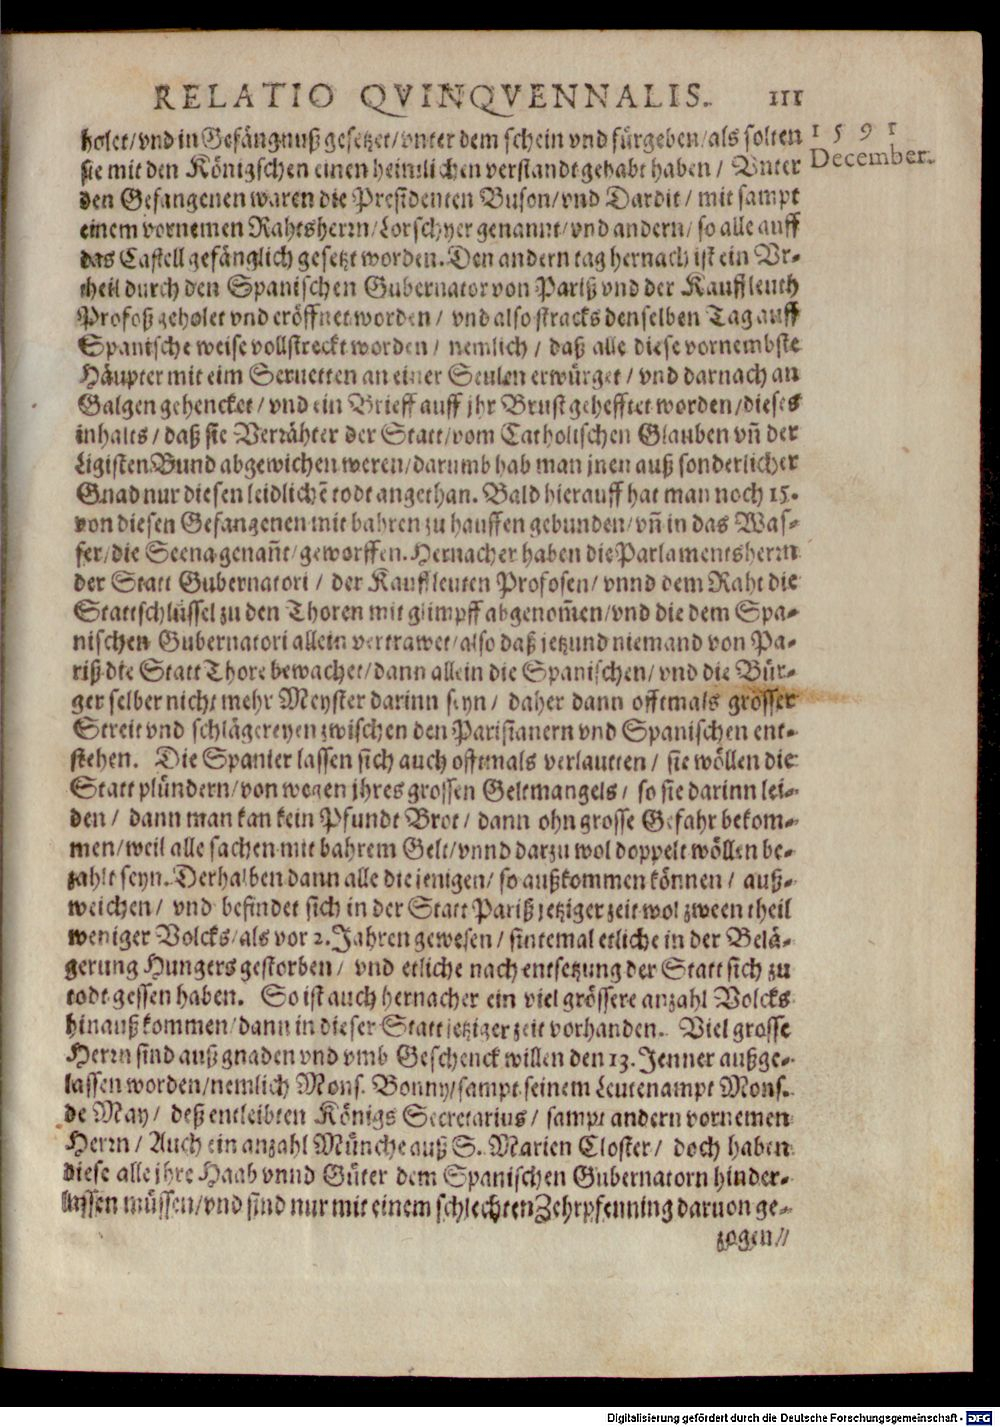 RELATIO QVINQVENNALIS. 111
1 5 9 1
December.
holet/vnd in Gefängnuß gesetzet/vnter dem schein vnd fürgeben/als solten
sie mit den Königschen einen heimlichen verstandt gehabt haben / Vnter
den Gefangenen waren die Presidenten Buson/vnd Dardit / mit sampt
einem vornemen Rahtsherrn/Lorschyer genannt/vnd andern/ so alle auff
das Castell gefänglich gesetzt worden. Den andern tag hernach ist ein Vr-
theil durch den Spanischen Gubernator von Pariß vnd der Kauffleuth
Profoß geholet vnd eröffnet worden / vnd also stracks denselben Tag auff
Spanische weise vollstreckt worden / nemlich / daß alle diese vornembste
Häupter mit eim Seruetten an einer Seulen erwürget / vnd darnach an
Galgen gehencket / vnd ein Brieff auff jhr Brust gehefftet worden/dieses
inhalts / daß sie Verrähter der Statt/vom Catholischen Glauben vñ der
Ligisten Bund abgewichen weren/darumb hab man jnen auß sonderlicher
Gnad nur diesen leidlichē todt angethan. Bald hierauff hat man noch 15.
von diesen Gefangenen mit bahren zu hauffen gebunden/vñ in das Was-
ser/die Seena genañt/geworffen. Hernacher haben die Parlamentsherrn
der Statt Gubernatori / der Kauffleuten Profosen/ vnnd dem Raht die
Stattschlüssel zu den Thoren mit glimpff abgenom̃en/vnd die dem Spa-
nischen Gubernatori allein vertrawet/also daß jetzund niemand von Pa-
riß die Statt Thore bewachet/dann allein die Spanischen/ vnd die Bür-
ger selber nicht mehr Meyster darinn seyn / daher dann offtmals grosser
Streit vnd schlägereyen zwischen den Parisianern vnd Spanischen ent-
stehen. Die Spanier lassen sich auch offtmals verlautten / sie wöllen die
Statt plündern/von wegen jhres grossen Geltmangels / so sie darinn lei-
den / dann man kan kein Pfundt Brot / dann ohn grosse Gefahr bekom-
men/weil alle sachen mit bahrem Gelt/vnnd darzu wol doppelt wöllen be-
zahlt seyn. Derhalben dann alle die jenigen/ so außkommen können / auß-
weichen / vnd befindet sich in der Statt Pariß jetziger zeit wol zween theil
weniger Volcks/als vor 2. Jahren gewesen / sintemal etliche in der Belä-
gerung Hungers gestorben / vnd etliche nach entsetzung der Statt sich zu
todt gessen haben. So ist auch hernacher ein viel grössere anzahl Volcks
hinauß kommen/dann in dieser Statt jetziger zeit vorhanden. Viel grosse
Herrn sind auß gnaden vnd vmb Geschenck willen den 13. Jenner außge-
lassen worden/nemlich Mons. Bonny/sampt seinem Leutenampt Mons.
de May / deß entleibten Königs Secretarius / sampt andern vornemen
Herrn / Auch ein anzahl Münche auß S. Marien Closter / doch haben
diese alle jhre Haab vnnd Güter dem Spanischen Gubernatorn hinder-
lassen müssen/vnd sind nur mit einem schlechten Zehrpfenning daruon ge-
zogen//
Digitalisierung gefördert durch die Deutsche Forschungsgemeinschaft - DFG